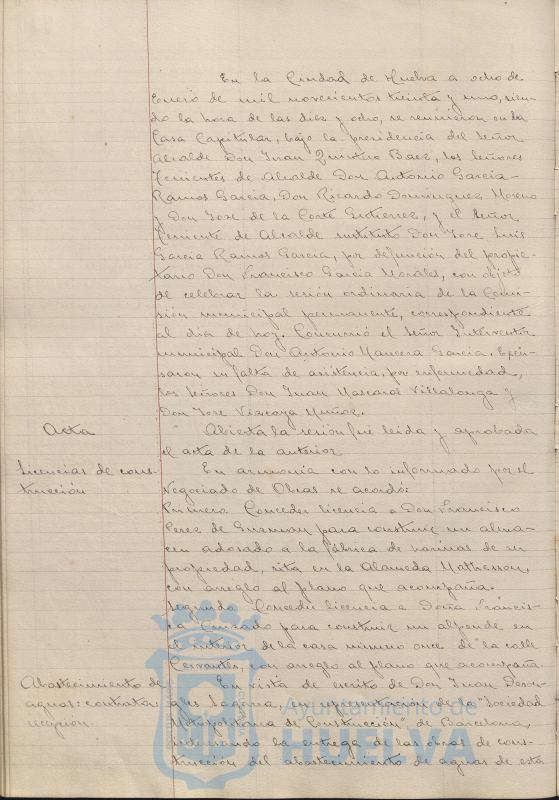 En la Ciudad de Huelva a ocho de
Enero de mil novecientos treinta y uno, sien-
do la hora de las diez y ocho, se reunieron en la
Casa Capitular, bajo la presidencia del Señor
Alcalde Don Juan Quintero Baez, los Señores
Tenientes de Alcalde Don Antonio Garcia-
Ramos Garcia, Don Ricardo Dominguez Moreno
y Don Jose de la Corte Gutierrez, y el Señor
Teniente de Alcalde sustituto Don Jose Luis
Garcia Ramos Garcia, por defunción del propie-
tario Don Francisco Garcia Morales, con objeto
de celebrar la sesión ordinaria de la Comi-
sión municipal permanente, correspondiente
al dia de hoy. Concurrió el Señor Interventor
municipal Don Antonio Mancera Garcia. Excu-
saron su falta de asistencia, por enfermedad,
los Señores Don Juan Mascaros Villalonga y
Don Jose Vizcaya Muñoz.
Acta
Abierta la sesión fué leida y aprobada
el acta de la anterior
Licencias de cons-
trucción
En armonia con lo informado por el
Negociado de Obras se acordó:
Primero Conceder licencia a Don Francisco
Perez de Guzman para construir un alma-
cen adosado a la Fábrica de harinas de su
propiedad, sita en la Alameda Mathesson,
con arreglo al plano que acompaña.
Segundo Conceder licencia a Doña Francis-
ca para construir un alpende en
el interior de la casa número once de la calle
Cervantes, con arreglo al plano que acompaña.
Abastecimiento de
aguas: contratan
recepción.
En vista de escrito de Don Juan
Laguna, en representación de la "Sociedad
Metropolitana de Construcción" de Barcelona,
interesando la entrega de las obras de cons-
trucción del abastecimiento de aguas de esta
Ayuntamiento de
HUELVA